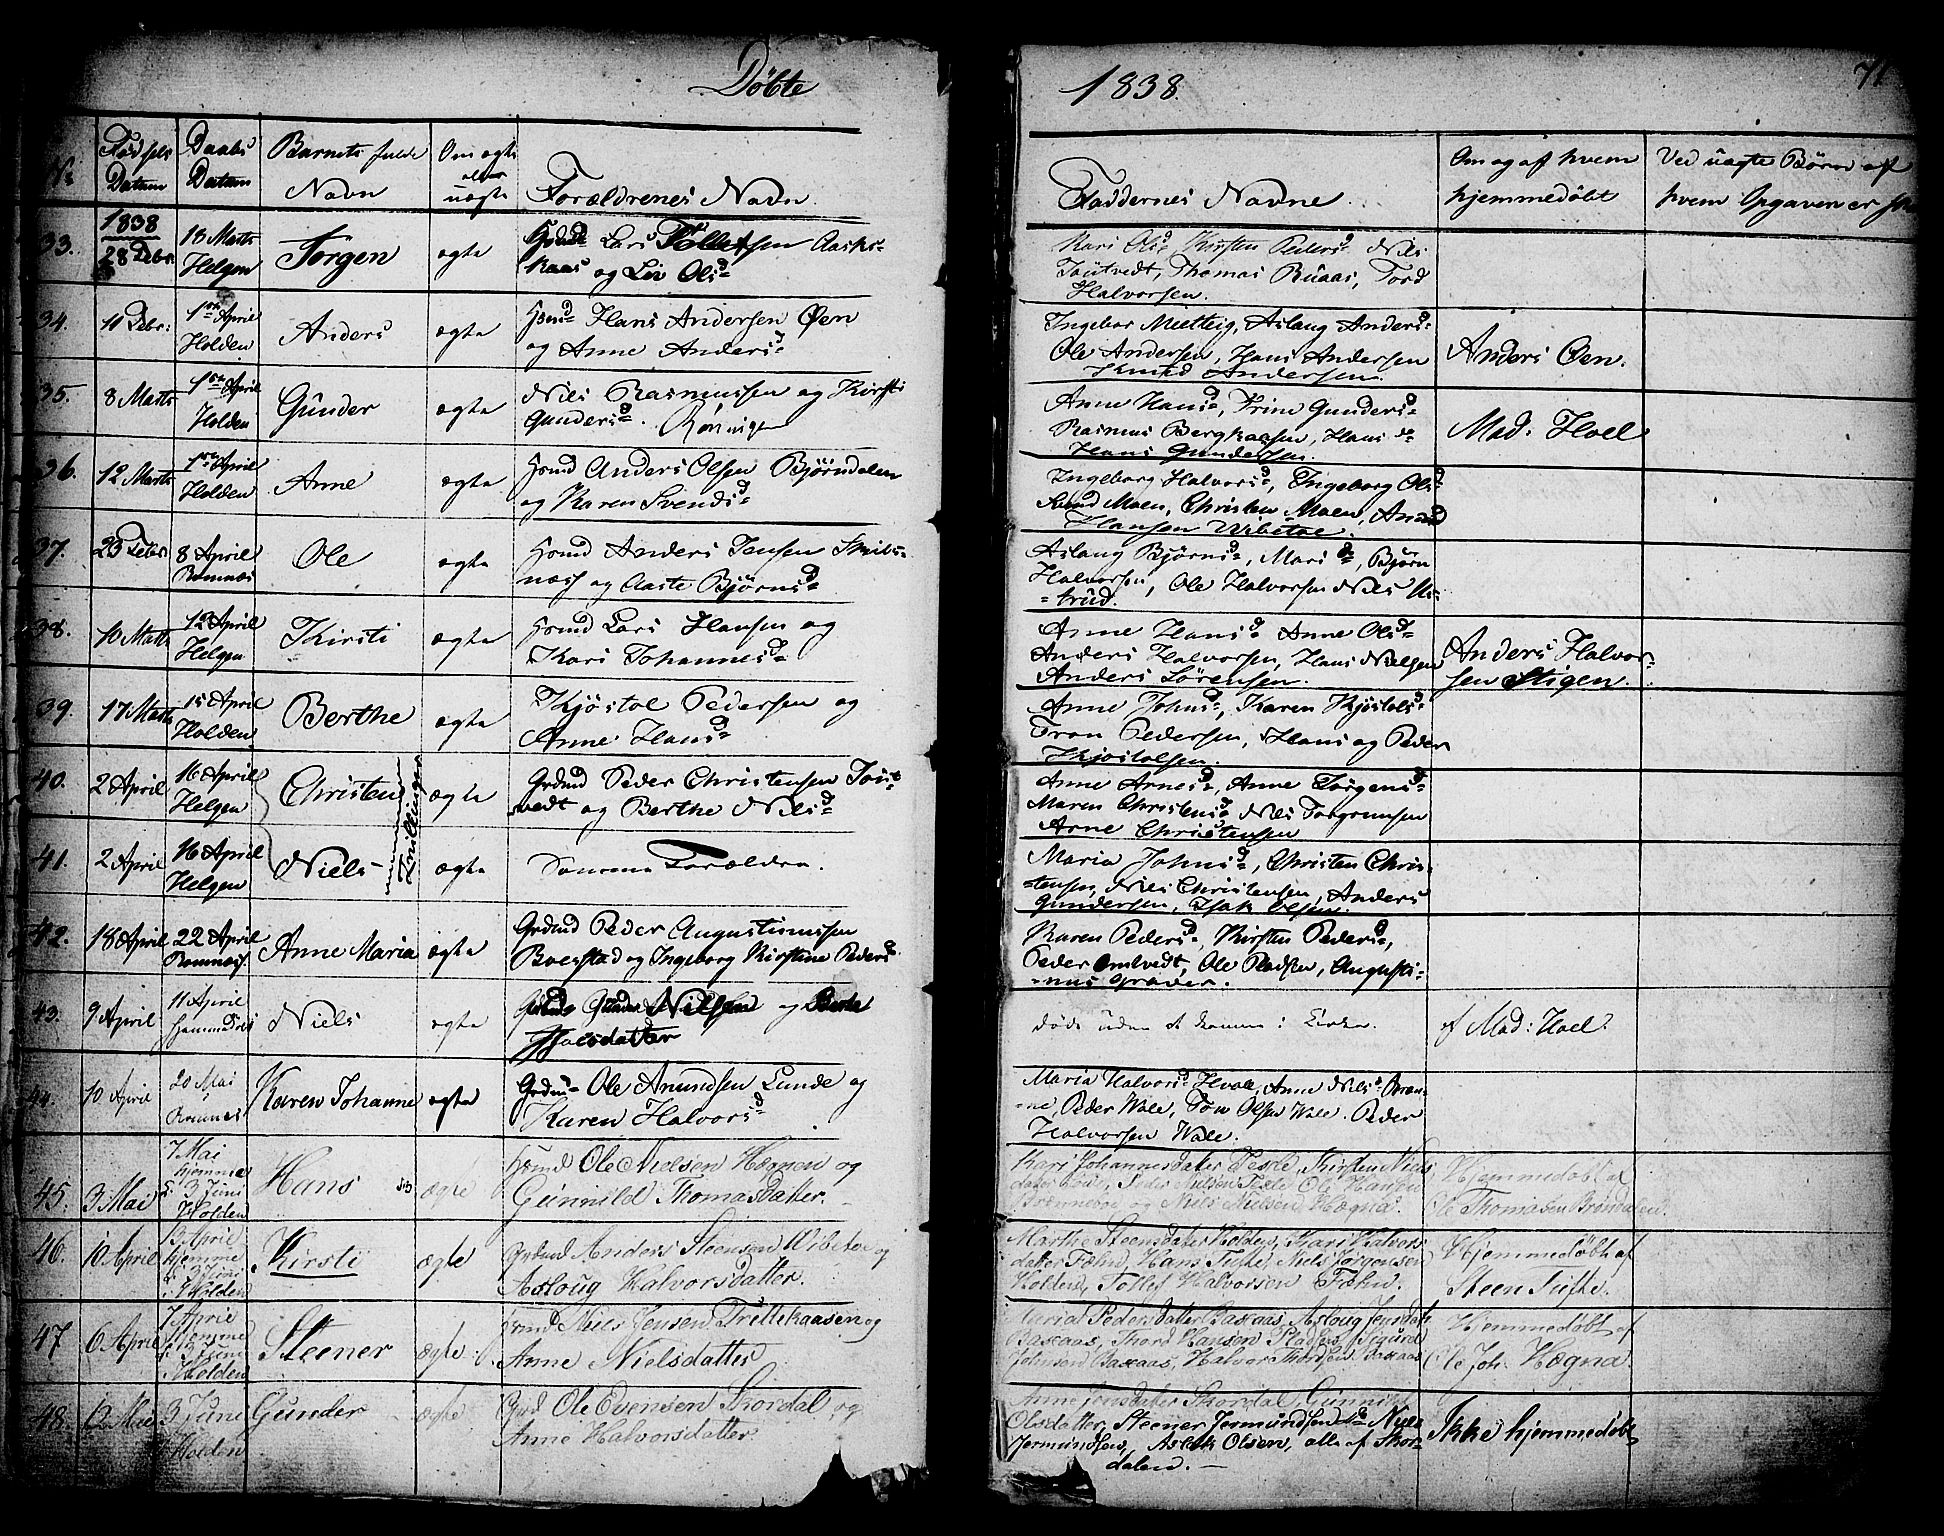 Døbte
1838.
71
No
Fødsels Datum
Daabs Datum
Barnets fulde Navn
Om ægte eller uægte
Forældrenes Navn.
Faddernes Navne.
Om og af hvem hjemmedøbt
Ved uægte Børn af hvem Opgaven er
1838
33. 28 Febr. 18 Marts Helgen Jørgen ægte
Lars Tollefsen Aaskaas og Liv Olsd
Kari Olsd, Kirsten Pedersd Niels
Tautvedt, Thomas Buaas, Tord
Halvorsen.
34. 11 Febr: 1ste April Holden Anders ægte
Hans Andersen Øen
og Anne Andersd
Ingebor Aslaug Andersd
Ole Andersen, Hans Andersen
Knud Andersen.
Anders Øen.
35. 8 Marts 1ste April Holden Gunder ægte
Niels Rasmussen og Kirsti
Gundersd. Rønningen
Anne Hansd, Trine Gundersd
Rasmus Bergkaasen, Hans
Hans Gundersen.
Mad: Hoel
36. 12 Marts 1ste April Holden Anne ægte
Anders Olsen Bjørndalen
og Karen Svendsd
Ingeborg Halvorsd, Ingeborg Olsd
Svend Moen, Christen Moen, Amund
Hansen Wibetoe.
37. 23 Febr: 8 April Romnæs Ole ægte
Anders Jensen
næss og Aaste Bjørnsd
Aslaug Bjørnsd, Mari do, Bjørn
Halvorsen, Ole Halvorsen Niels
38. 10 Marts 12 April Helgen Kirsti ægte
Lars Hansen og
Kari Johannesd
Anne Hansd Anne Olsd
Anders Halvorsen, Hans Nielsen
Anders Sørensen.
Anders Halvorsen Stigen.
39. 17 Marts 15 April Holden Berthe ægte
Kjøstol Pedersen og
Anne Hansd
Anne Johnsd, Karen Kjøstolsd
Tron Pedersen, Hans og Peder
Kjøstolsen.
40. 2 April 16 April Helgen Christen ægte
Tvillinger
Grdmd Peder Christensen Tautvedt og Berthe Nielsd
Anne Arnesd, Anne Jørgensd
Maren Christensd Niels Torgrimsen
Arne Christensen
41. 2 April 16 April Helgen Niels ægte
Samme Forældre.
Maria Johnsd, Christen Christensen, Niels Christensen, Anders
Gundersen, Isak Olsen.
42. 18 April 22 April Romnæs. Anne Maria ægte
Grdmd Peder Augustinussen
Boerstad og Ingeborg Kirstine Pedersd
Karen Pedersd, Kirsten Pedersd,
Peder Omtvedt, Ole Pladsen, Augustinus Graver.
43. 9 April 11 April Niels ægte
Gunder Nielsen og Berte
død uden at komme i Kirken.
af Mad: Hoel.
44. 10 April 20 Mai Romnes Karen Johanne ægte
Ole Amundsen Lunde og
Karen Halvorsd
Maria Halvorsd Hvale, Anne Nielsd
Peder Wale, Tov Olsen Wale. Peder
Halvorsen Wale.
45. 3 Mai 7 Mai hjemme 3 Juni Holden Hans ægte
Ole Nielsen Hægnen og
Gunnild Thomasdatter.
Kari Johannesdatter Kirsten Nielsdatter Ole Hansen
og Niels Nielsen Hægna.
Hjemmedøbt af
Ole Thomasen Brøndalen.
46. 10 April 13 April hjemme 3 Juni i Holden Kirsti ægte
Grdmd Anders Steensen Wibetoe og
Asloug Halvorsdatter.
Marthe Steensdatter Holden, Kari Halvorsdatter Fæhn, Hans Tufte, Niels Jørgensen
Holden, Tollef Halvorsen Fæhn.
Hjemmedøbt af
Steen Tufte.
47 6 April 7 April hjemme 3 Juni Holden Steener ægte
Niels Jensen Trittekaasen og
Anne Nielsdatter
Maria Pedersdatter Baskaas, Asloug Jensdatter
Baskaas, Thord Hansen Pladsen, Sigurd
Johnsen Baskaas, Halvor Thordsen Baskaas
Hjemmedøbt af
Ole Joh. Hægna.
48. 12 Mai 3 Juni Holden Gunder ægte
Ole Evensen Skordal og
Anne Halvorsdatter.
Anne Jensdatter Skordal Gunnild
Olsdatter, Steener Jermundsen, Niels
Jermundsen, Aslak Olsen, alle af Skordalen.
Ikke hjemmedøbt